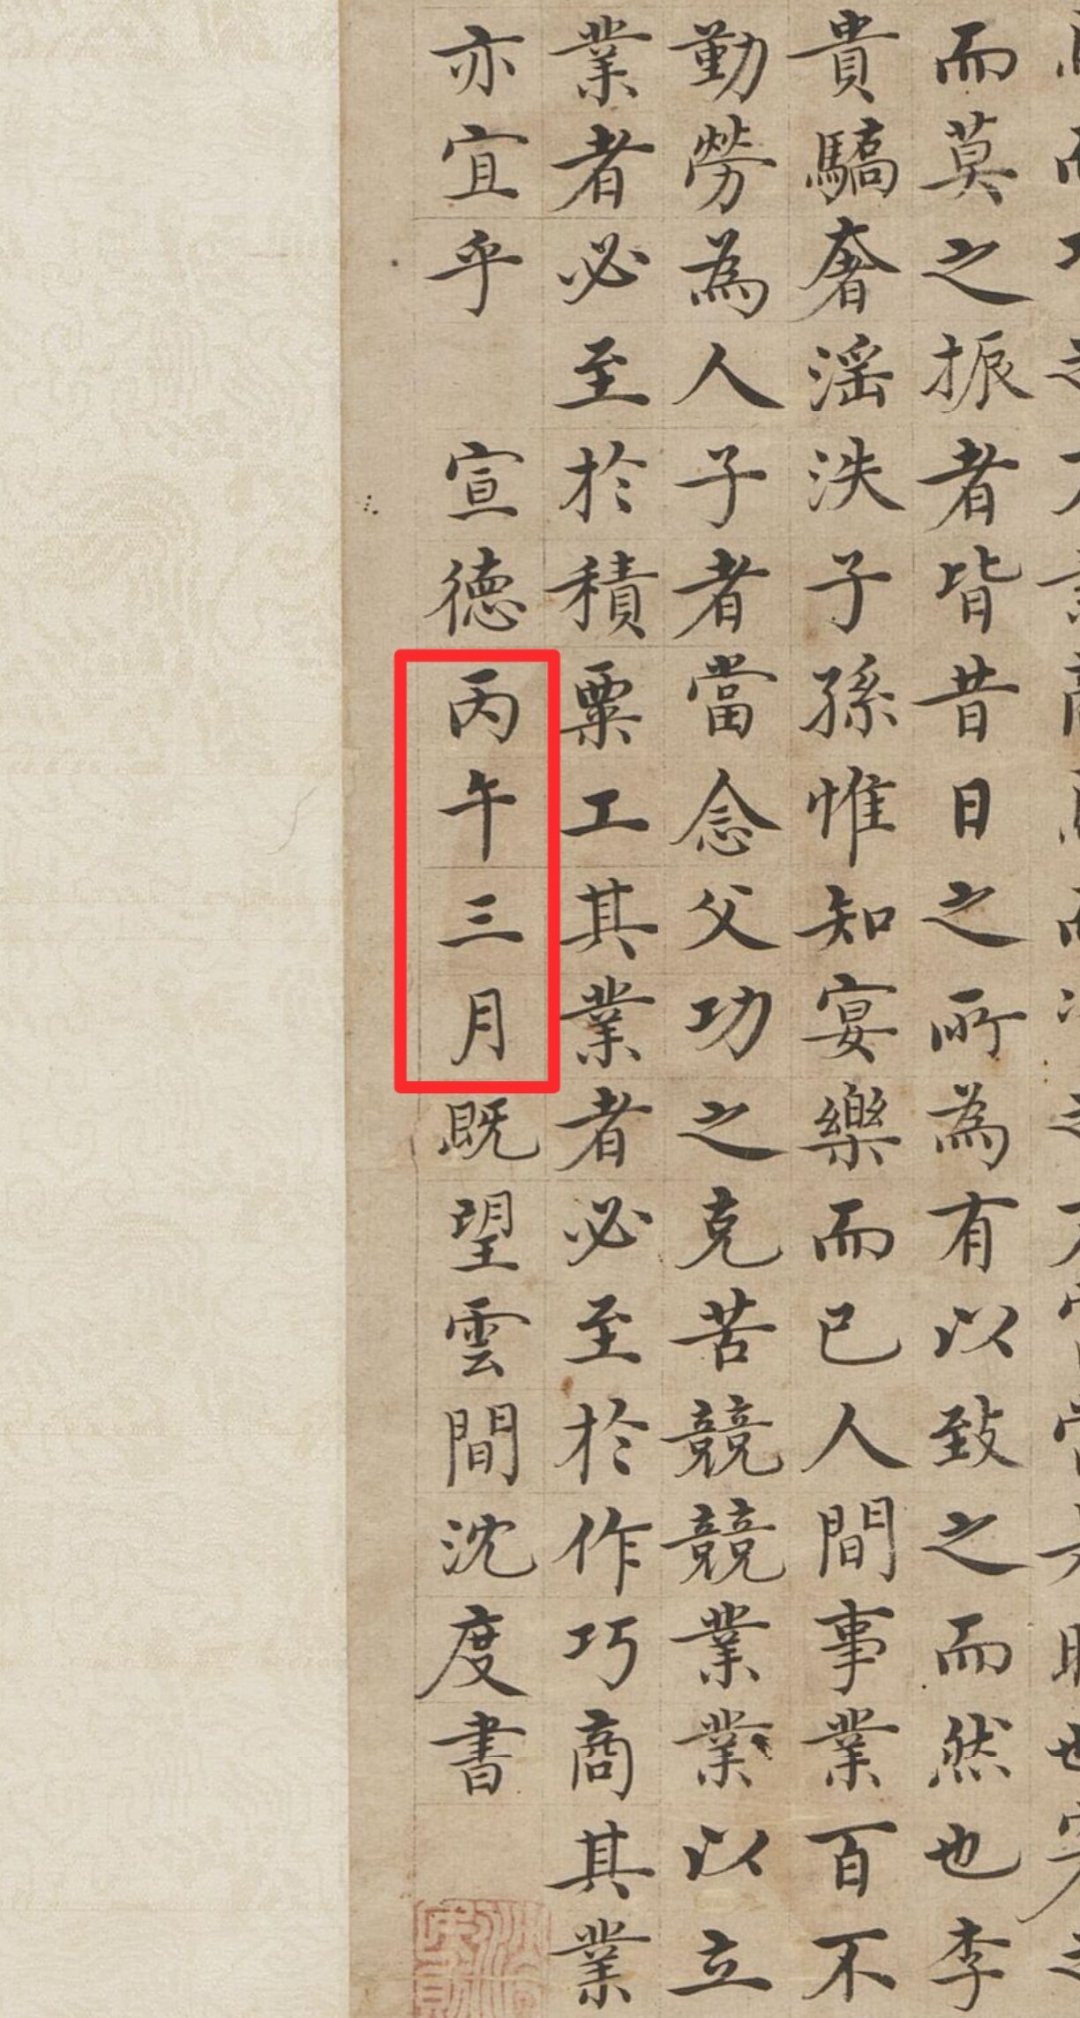 而莫之振者皆昔日之所為有以致之而然也李
貴驕奢淫泆子孫惟知宴樂而已人間事業百不
勤勞為人子者當念父功之克苦競競業業以立
業者必至於積粟工其業者必至於作巧商其業
亦宜乎 宣德丙午三月既望雲間沈度書